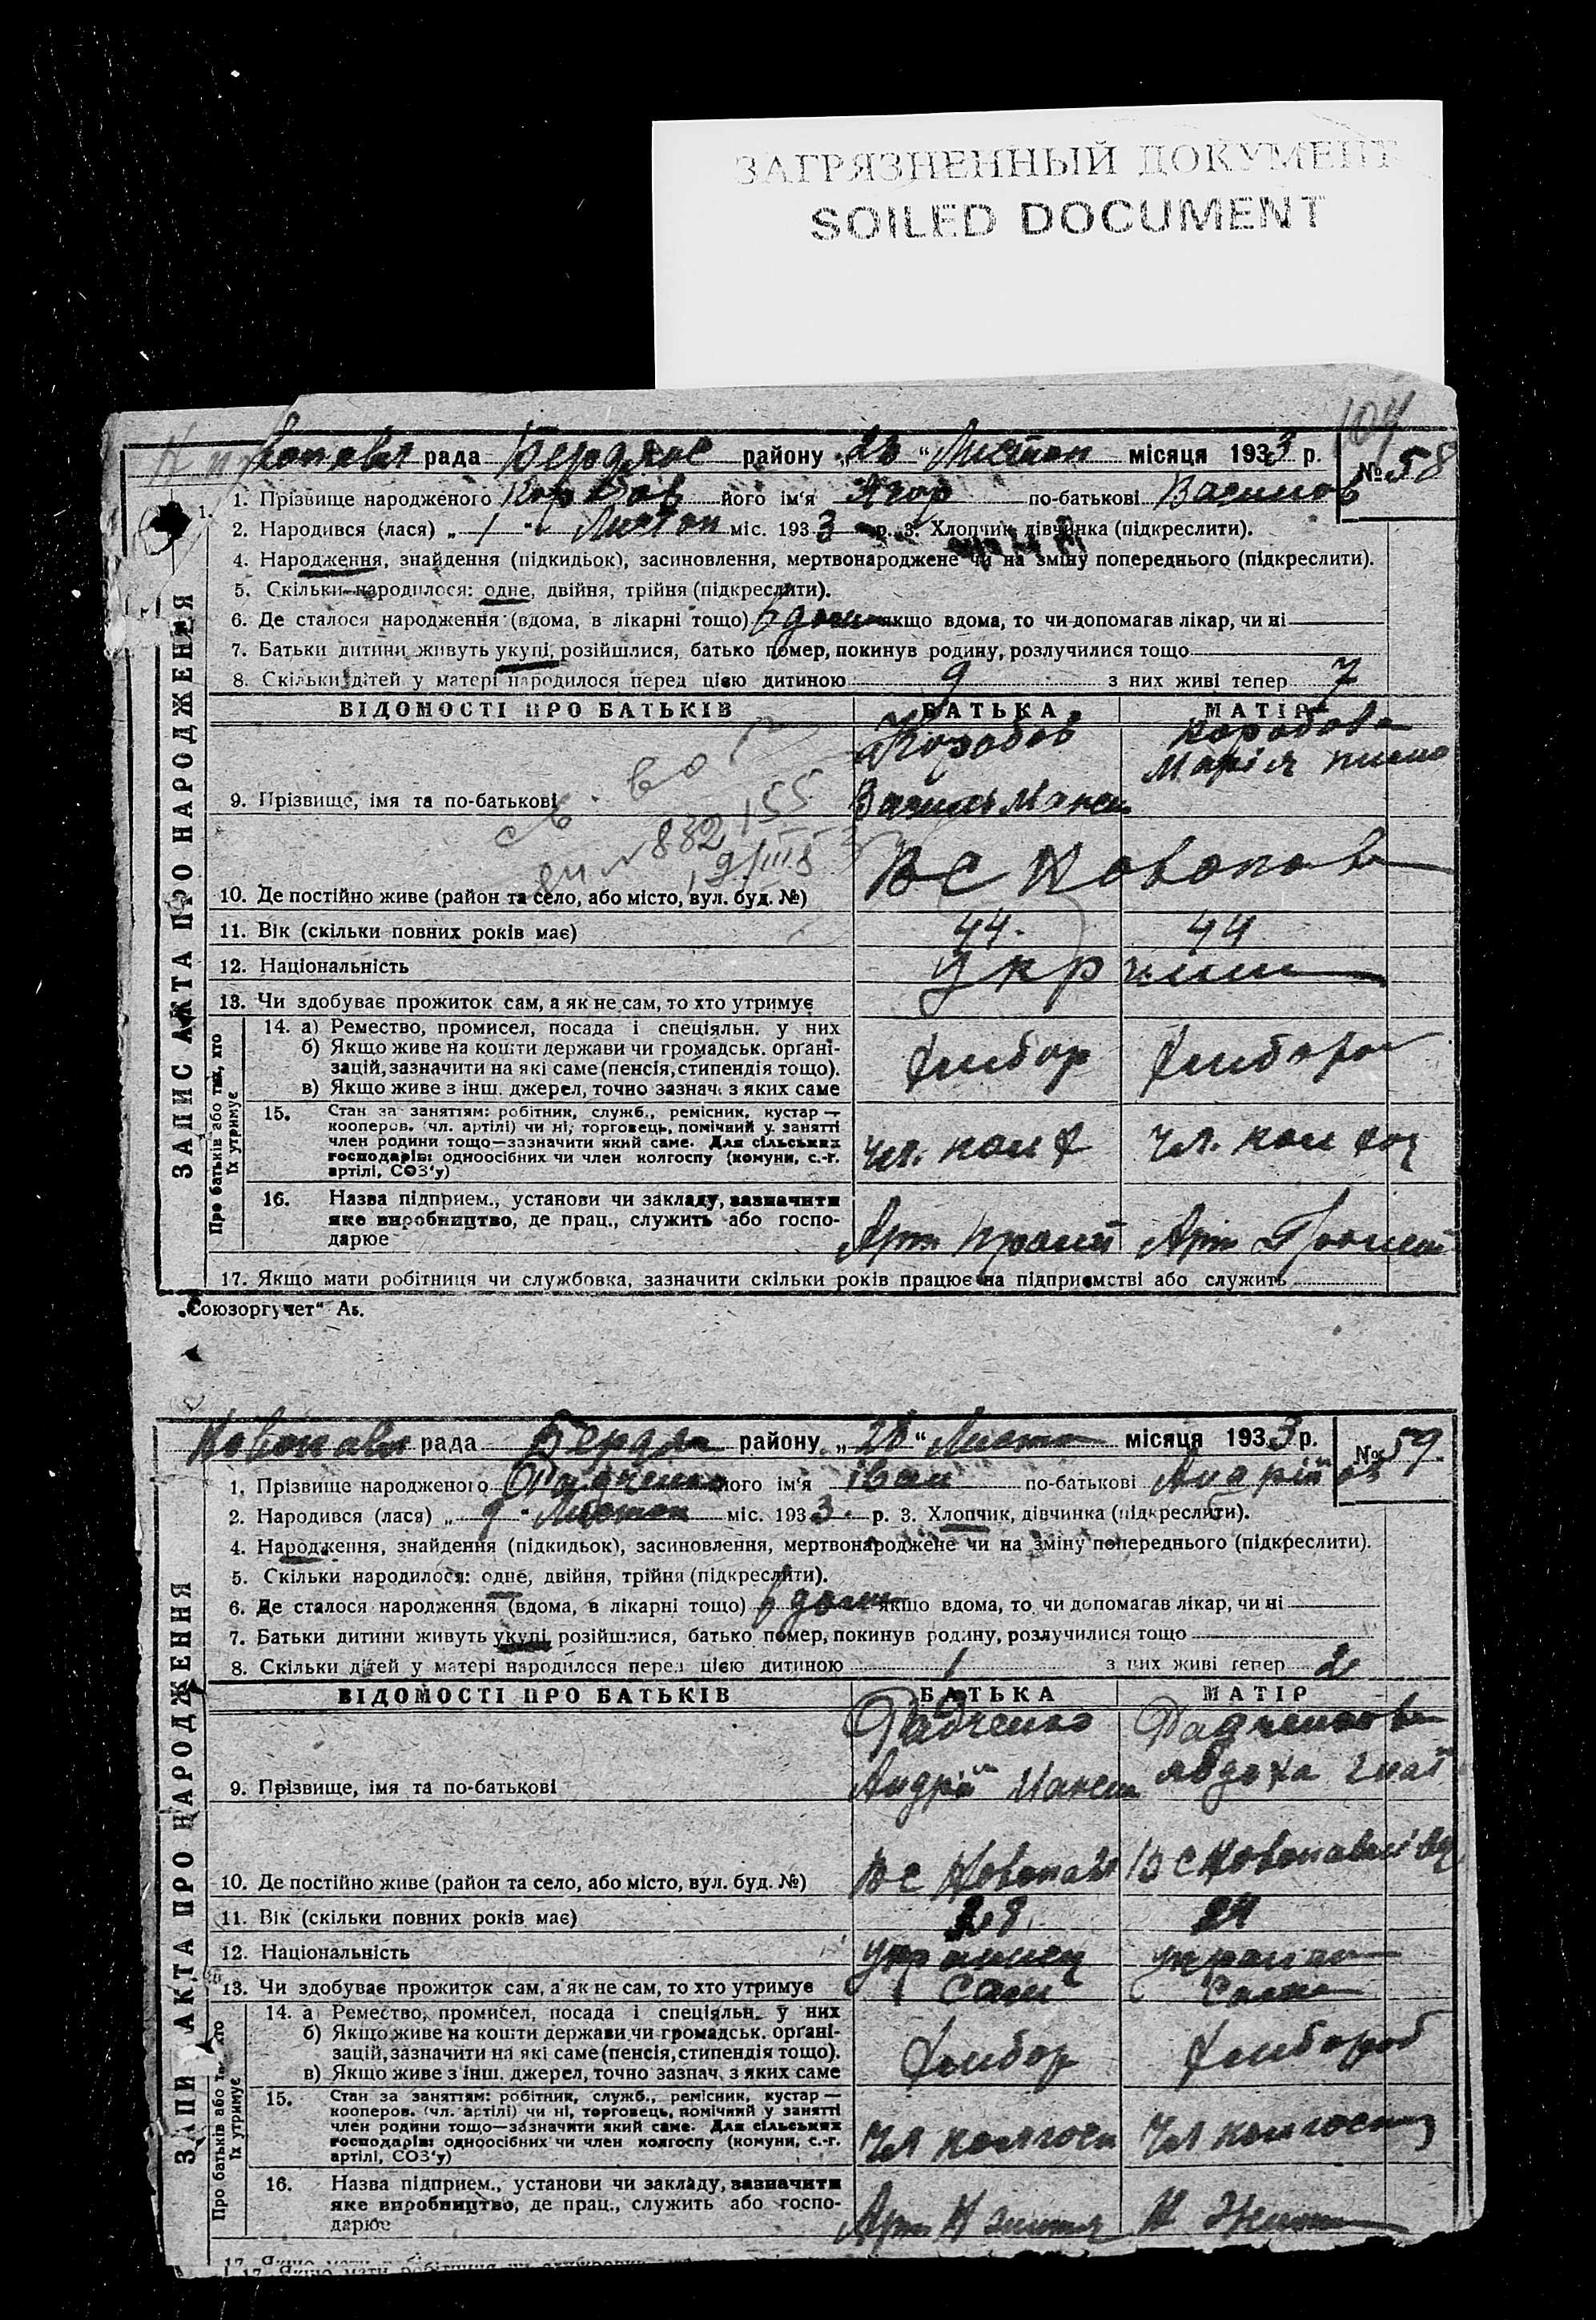 ЗАГРЯЗНЕННЫЙ ДОКУМЕНТ
SOILED DOCUMENT
104
рада Бердянс району „28“ Листоп місяця 1933 р. № 58
1. Прізвище народженого його ім'я по-батькові Василов
2. Народився (лася) „1“ Листоп міс. 1933 р. 3. Хлопчик, дівчинка (підкреслити).
4. Народження, знайдення (підкидьок), засиновлення, мертвонароджене чи на зміну попереднього (підкреслити).
5. Скільки народилося: одне, двійня, трійня (підкреслити).
6. Де сталося народження (вдома, в лікарні тощо) якщо вдома, то чи допомагав лікар, чи ні
7. Батьки дитини живуть укупі, розійшлися, батько помер, покинув родину, розлучилися тощо
8. Скільки дітей у матері народилося перед цією дитиною 9 з них живі тепер 7
ЗАПИС АКТА ПРО НАРОДЖЕННЯ
ВІДОМОСТІ ПРО БАТЬКІВ БАТЬКА МАТІР
Коробов Коробова
Марія
9. Прізвище, імя та по-батькові Василь Макси
10. Де постійно живе (район та село, або місто, вул. буд. №) Новопав
11. Вік (скільки повних років має) 44 44
12. Національність
13. Чи здобуває прожиток сам, а як не сам, то хто утримує
Про батьків або тих, хто їх утримує
14. а) Ремество, промисел, посада і спеціяльн. у них
б) Якщо живе на кошти держави чи громадськ. орґані-
зацій, зазначити на які саме (пенсія, стипендія тощо).
в) Якщо живе з інш. джерел, точно зазнач. з яких саме
Хлібор Хлібороб
15. Стан за заняттям: робітник, служб., ремісник, кустар —
кооперов. (чл. артілі) чи ні, торговець, помічний у занятті
член родини тощо—зазначити який саме. Для сільських
господарів: одноосібних чи член колгоспу (комуни, с.-г.
артілі, СОЗ'у)
чл. чл.
16. Назва підприєм., установи чи закладу, зазначити
яке виробництво, де прац., служить або госпо-
дарює
Арт Арт
17. Якщо мати робітниця чи службовка, зазначити скільки років працює на підприємстві або служить
„Союзоргучет“ Ав.
Новопавл рада Бердян району „28“ Листоп місяця 1933 р. № 59
1. Прізвище народженого Радченко його ім'я Іван по-батькові Андрійов
2. Народився (лася) Листоп міс. 1933 р. 3. Хлопчик, дівчинка (підкреслити).
4. Народження, знайдення (підкидьок), засиновлення, мертвонароджене чи на зміну попереднього (підкреслити).
5. Скільки народилося: одне, двійня, трійня (підкреслити).
6. Де сталося народження (вдома, в лікарні тощо) якщо вдома, то чи допомагав лікар, чи ні
7. Батьки дитини живуть укупі, розійшлися, батько помер, покинув родину, розлучилися тощо
8. Скільки дітей у матері народилося перед цією дитиною 1 з них живі тепер 2
ЗАПИ АКТА ПРО НАРОДЖЕННЯ
ВІДОМОСТІ ПРО БАТЬКІВ БАТЬКА МАТІР
Радченко Радченкова
9. Прізвище, імя та по-батькові Андрій Макси Явдоха Гнат
10. Де постійно живе (район та село, або місто, вул. буд. №) Новопавл Новопавлівц
11. Вік (скільки повних років має) 24
12. Національність українец україн
13. Чи здобуває прожиток сам, а як не сам, то хто утримує Сам Сама
14. а Ремество, промисел, посада і спеціяльн. у них
б) Якщо живе на кошти держави чи громадськ. орґані-
зацій, зазначити на які саме (пенсія, стипендія тощо).
в) Якщо живе з інш. джерел, точно зазнач. з яких саме
Хлібор Хлібороб
15. Стан за заняттям: робітник, служб., ремісник, кустар —
кооперов. (чл. артілі) чи ні, торговець, помічний у занятті
член родини тощо—зазначити який саме. Для сільських
господарів: одноосібних чи член колгоспу (комуни, с.-г.
артілі, СОЗ'у)
Чл колгосп Чл колгосп
16. Назва підприєм., установи чи закладу, зазначити
яке виробництво, де прац., служить або госпо-
дарює
Арт Н Життя Н Життя